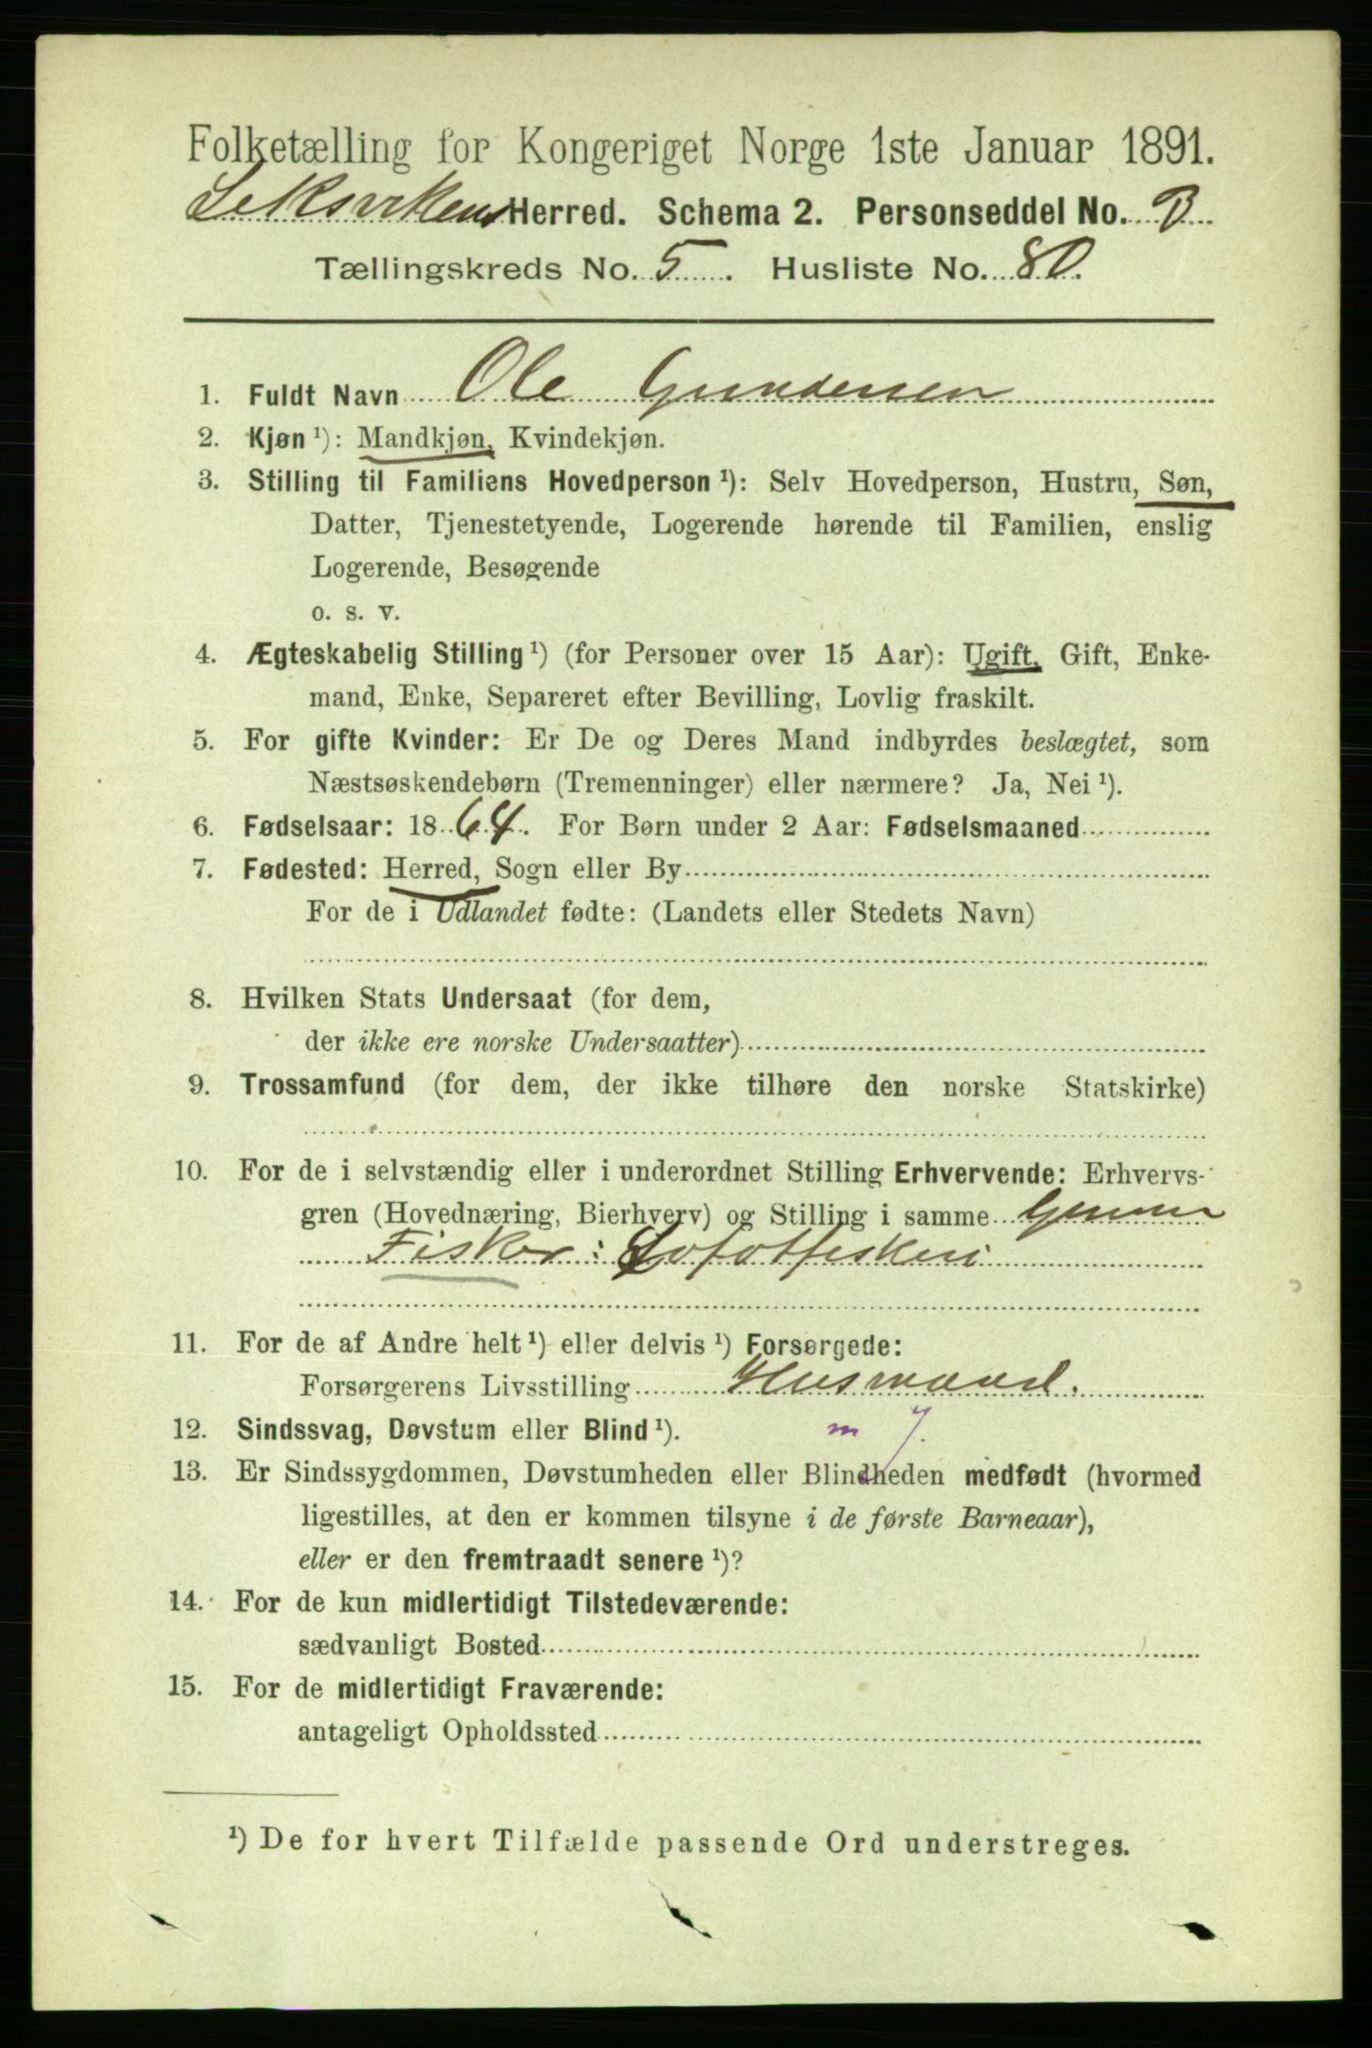 Folketælling for Kongeriget Norge 1ste Januar 1891.
Leksvikens Herred. Schema 2. Personseddel No.
Tællingskreds No. 5. Husliste No. 80.
1. Fuldt Navn Ole Gundersen
2. Kjøn ¹): Mandkjøn, Kvindekjøn.
3. Stilling til Familiens Hovedperson ¹): Selv Hovedperson, Hustru, Søn,
Datter, Tjenestetyende, Logerende hørende til Familien, enslig
Logerende, Besøgende
o. s. v.
4. Ægteskabelig Stilling ¹) (for Personer over 15 Aar): Ugift, Gift, Enke-
mand, Enke, Separeret efter Bevilling, Lovlig fraskilt.
5. For gifte Kvinder: Er De og Deres Mand indbyrdes beslægtet, som
Næstsøskendebørn (Tremenninger) eller nærmere? Ja, Nei ¹).
6. Fødselsaar: 1864. For Børn under 2 Aar: Fødselsmaaned
7. Fødested: Herred, Sogn eller By
For de i Udlandet fødte: (Landets eller Stedets Navn)
8. Hvilken Stats Undersaat (for dem,
der ikke ere norske Undersaatter)
9. Trossamfund (for dem, der ikke tilhøre den norske Statskirke)
10. For de i selvstændig eller i underordnet Stilling Erhvervende: Erhvervs-
gren (Hovednæring, Bierhverv) og Stilling i samme
Fisker: Lofotfiskeri
11. For de af Andre helt ¹) eller delvis ¹) Forsørgede:
Forsørgerens Livsstilling Husmand.
12. Sindssvag, Døvstum eller Blind ¹).
13. Er Sindssygdommen, Døvstumheden eller Blindheden medfødt (hvormed
ligestilles, at den er kommen tilsyne i de første Barneaar),
eller er den fremtraadt senere ¹)?
14. For de kun midlertidigt Tilstedeværende:
sædvanligt Bosted
15. For de midlertidigt Fraværende:
antageligt Opholdssted
¹) De for hvert Tilfælde passende Ord understreges.